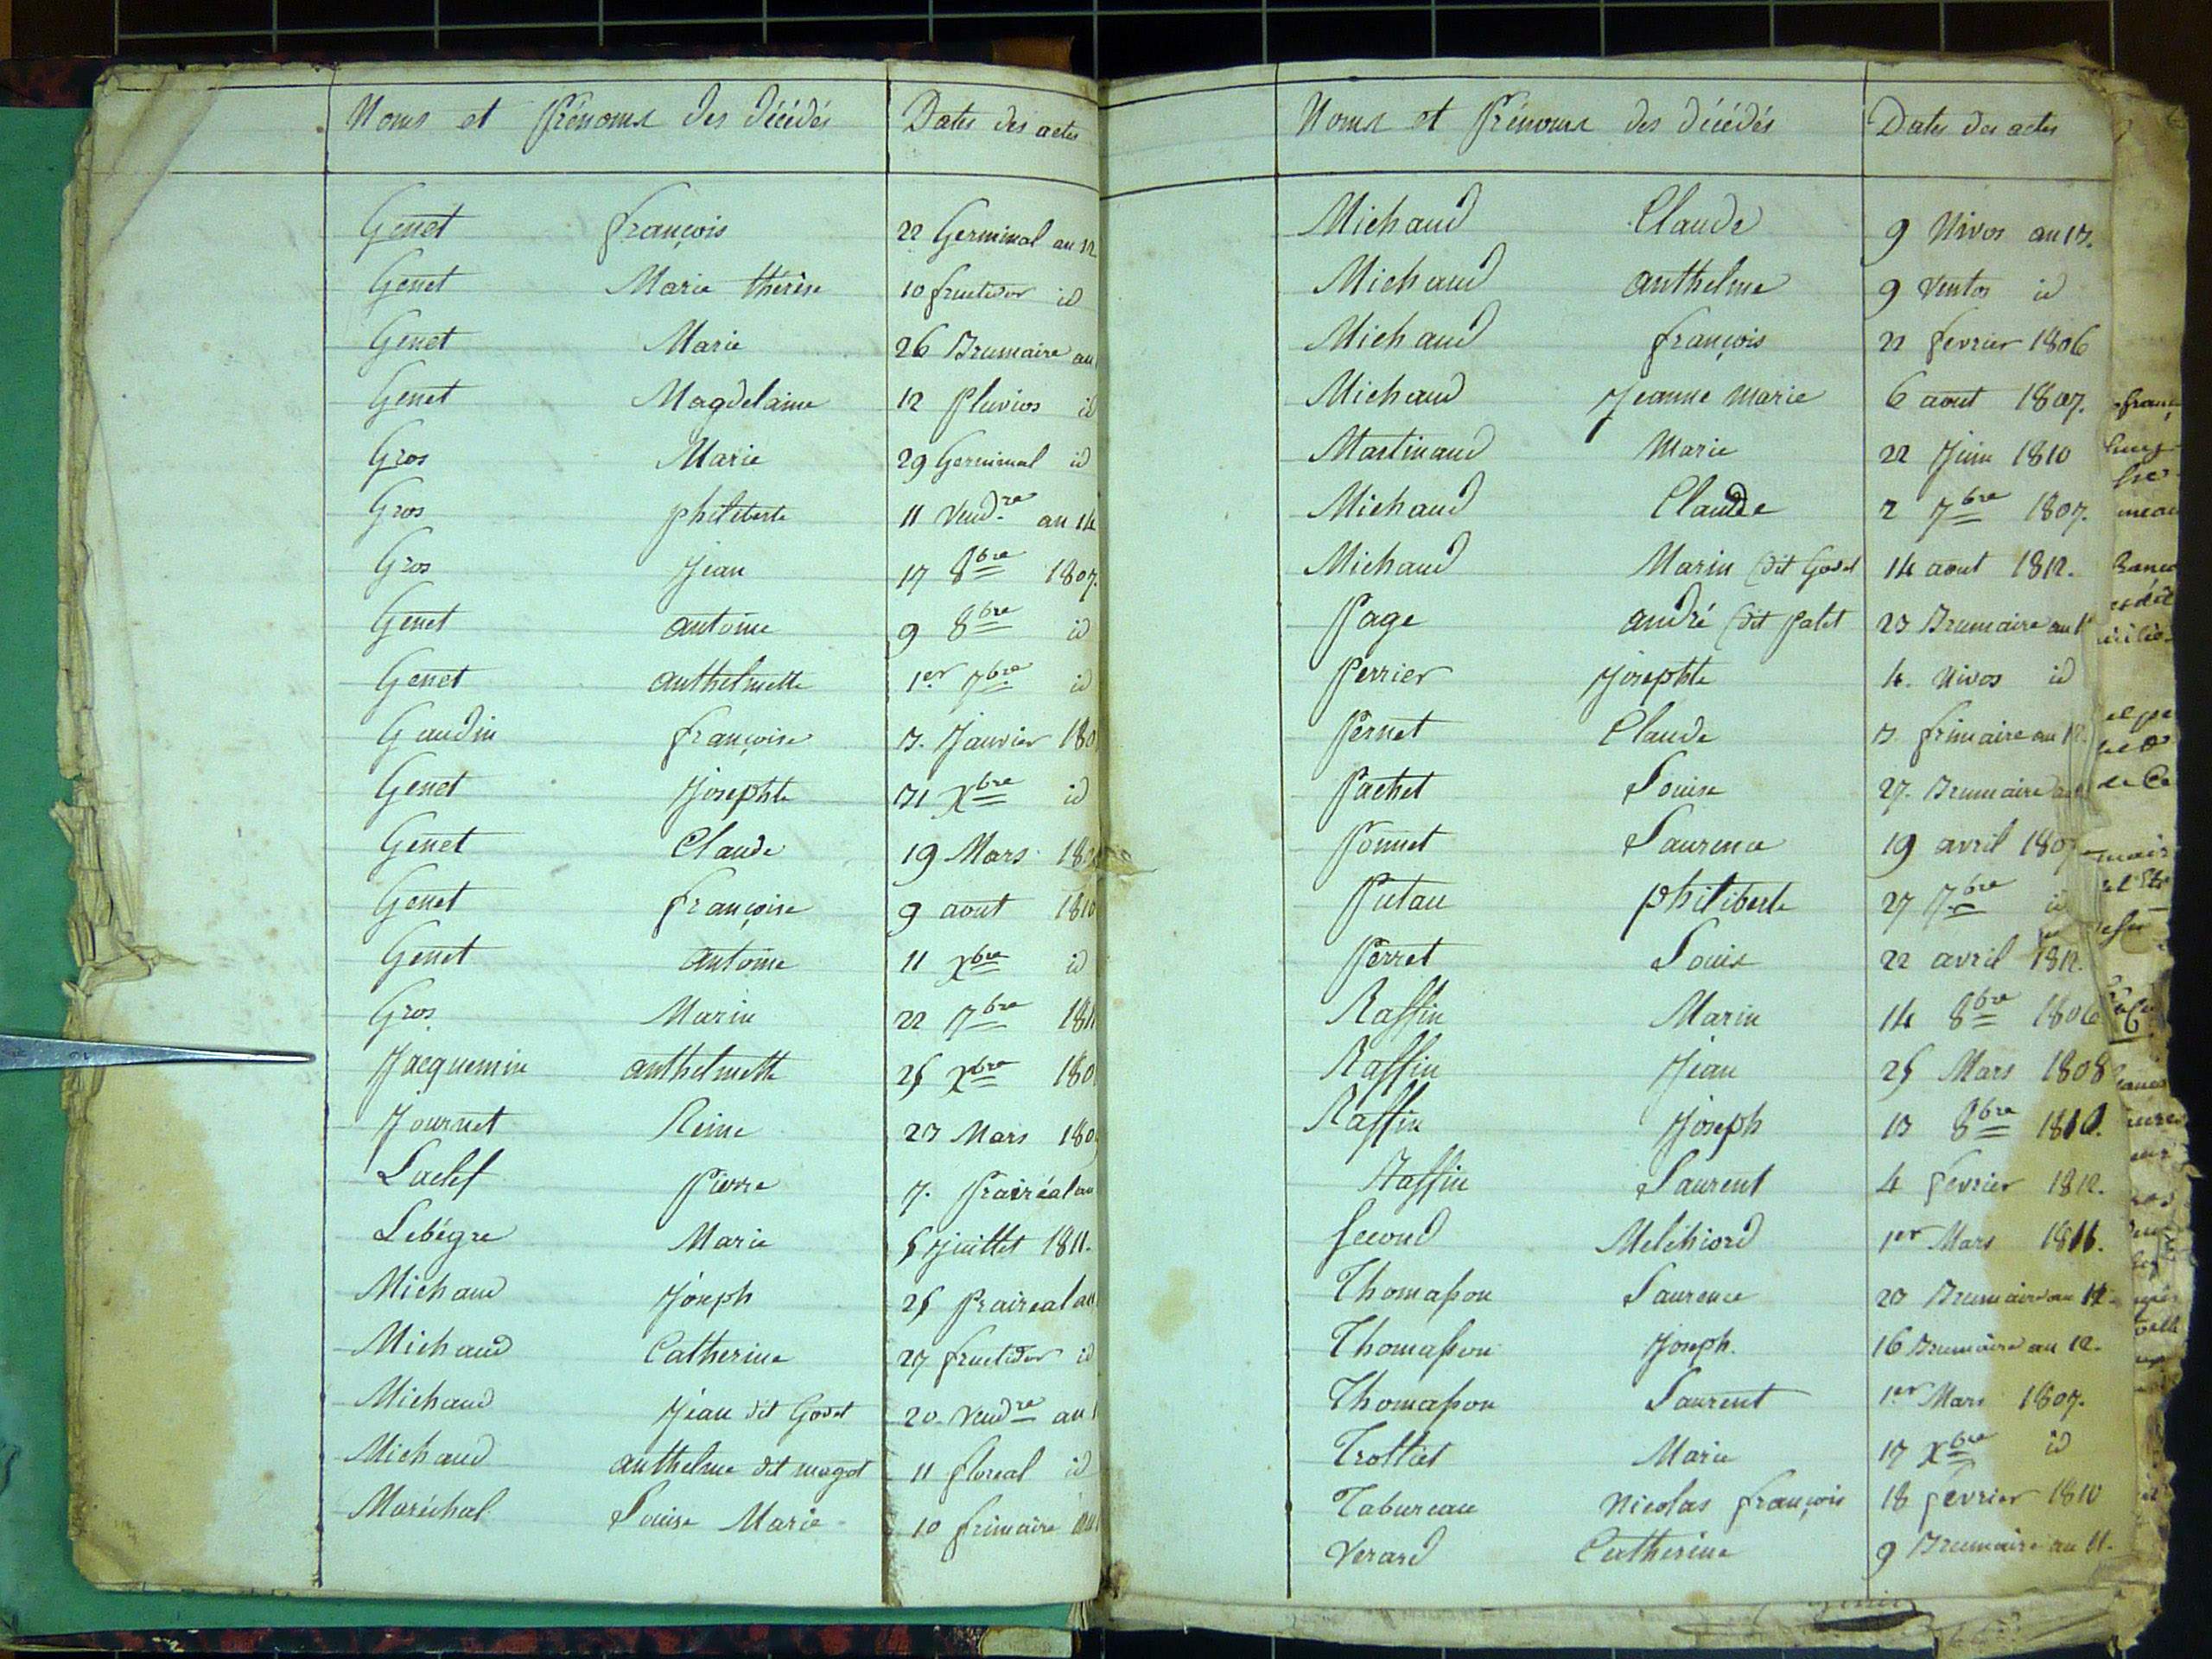 Noms et Prénoms des décédés Dates des actes
Genet françois 22 Germinal an 12
Genet Marie thérèse 10 fructidor id
Genet Marie 26 Brumaire an
Genet Magdelaine 12 Pluvios id
Gros Marie 29 Germinal id
Gros philiberte 11 Vend.re an 14
Gros Jean 17 8bre 1807.
Genet antoine 9 8bre id
Genet anthelmette 1er 7bre id
Gaudin françoise 3. Janvier 180
Genet Josephte 31 Xbre id
Genet Claude 19 Mars 180
Genet françoise 9 aout 1810
Genet antoine 11 Xbre id
Gros Marin 22 7bre 181
Jacquemin anthelmette 25 Xbre 180
Journet Reine 23 Mars 180
Pierre 7. Prairéal an
Lebégre Marie 5 Juillet 1811.
Michaud Joseph 25 Prairéal an
Michaud Catherine 27 fructidor id
Michaud Jean dit Godet 20 Vendre an 1
Michaud anthelme dit magot 11 floreal id
Maréchal Louise Marie 10 frimaire an
Noms et Prénoms des décédés Dates des actes
Michaud Claude 9 Nivos an 13.
Michaud anthelme 9 Ventos id
Michaud françois 22 fevrier 1806
Michaud Jeanne Marie 6 aout 1807.
Martinaud Marie 22 Juin 1810
Michaud Claude 2 7bre 1807.
Michaud Marin (dit Godet 14 aout 1812.
Page andré (dit Patet 23 Brumaire an 1
Perrier Josephte 4. Nivos id
Pernet Claude 3. frimaire an 12.
Pachet Louise 27. Brumaire
Ponnet Laurence 19 avril 1807
Putau philiberte 27 7bre id
Perret Louis 22 avril 1812.
Raffin Marin 14 8bre 1806
Raffin Jean 25 Mars 1808
Raffin Joseph 13 8bre 1810.
Raffin Laurent 4 fevrier 1812.
Second Melchiord 1er Mars 1811.
Thomasson Laurence 23 Brumaire an 12.
Thomasson Joseph. 16 Brumaire an 12.
Thomasson Laurent 1er Mars 1807.
Trottet Marie 17 Xbre id
Tabureau Nicolas françois 18 fevrier 1810
Verard Catherine 9 Brumaire an 11.